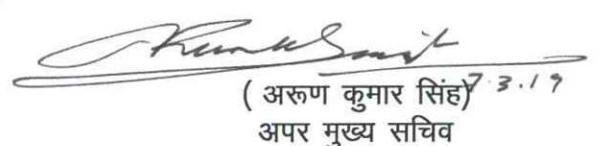 ( अरूण कुमार सिंह) 7.3.19
अपर मुख्य सचिव